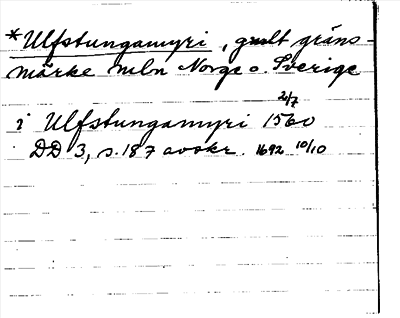 *Ulfstungamyri, gmlt gräns-
märke mln Norge o. Sverige
i Ulfstungamyri 1560 2/7
DD 3, s. 187 avskr. 1692 10/10